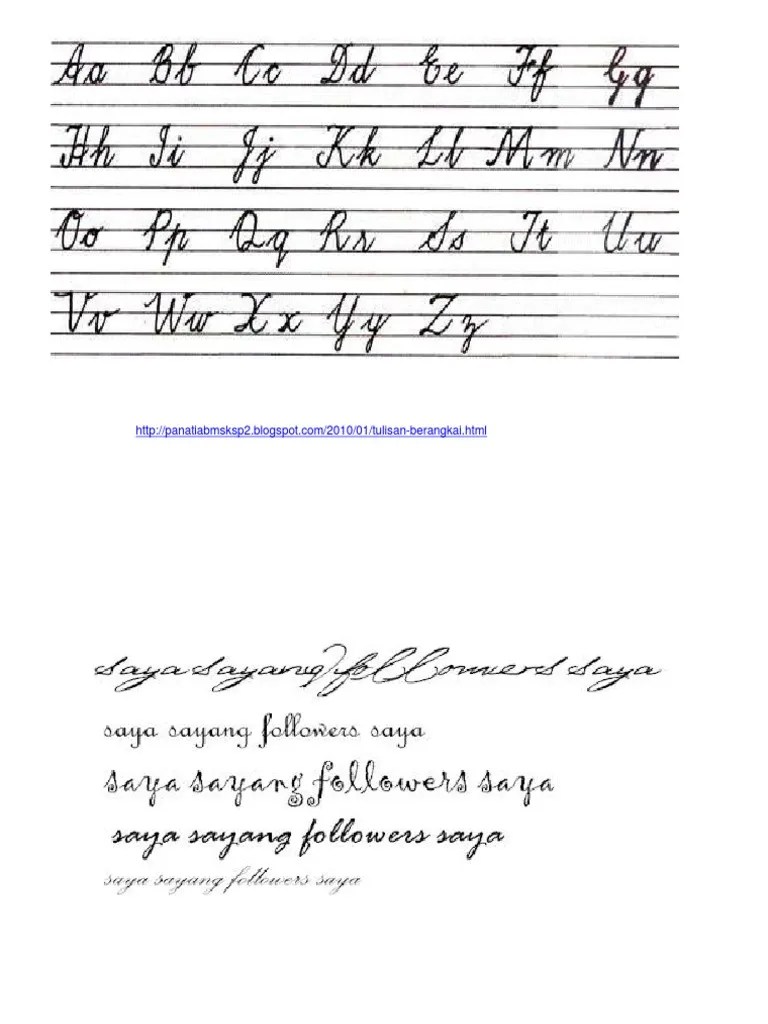 Aa Bb Cc Dd Ee Ff Gg
Hh Ii Jj Kk Ll Mm Nn
Oo Pp Qq Rr Ss Tt Uu
Vv Ww Xx Yy Zz
http://panatiabmsksp2.blogspot.com/2010/01/tulisan-berangkai.html
saya sayang followers saya
saya sayang followers saya
saya sayang followers saya
saya sayang followers saya
saya sayang followers saya